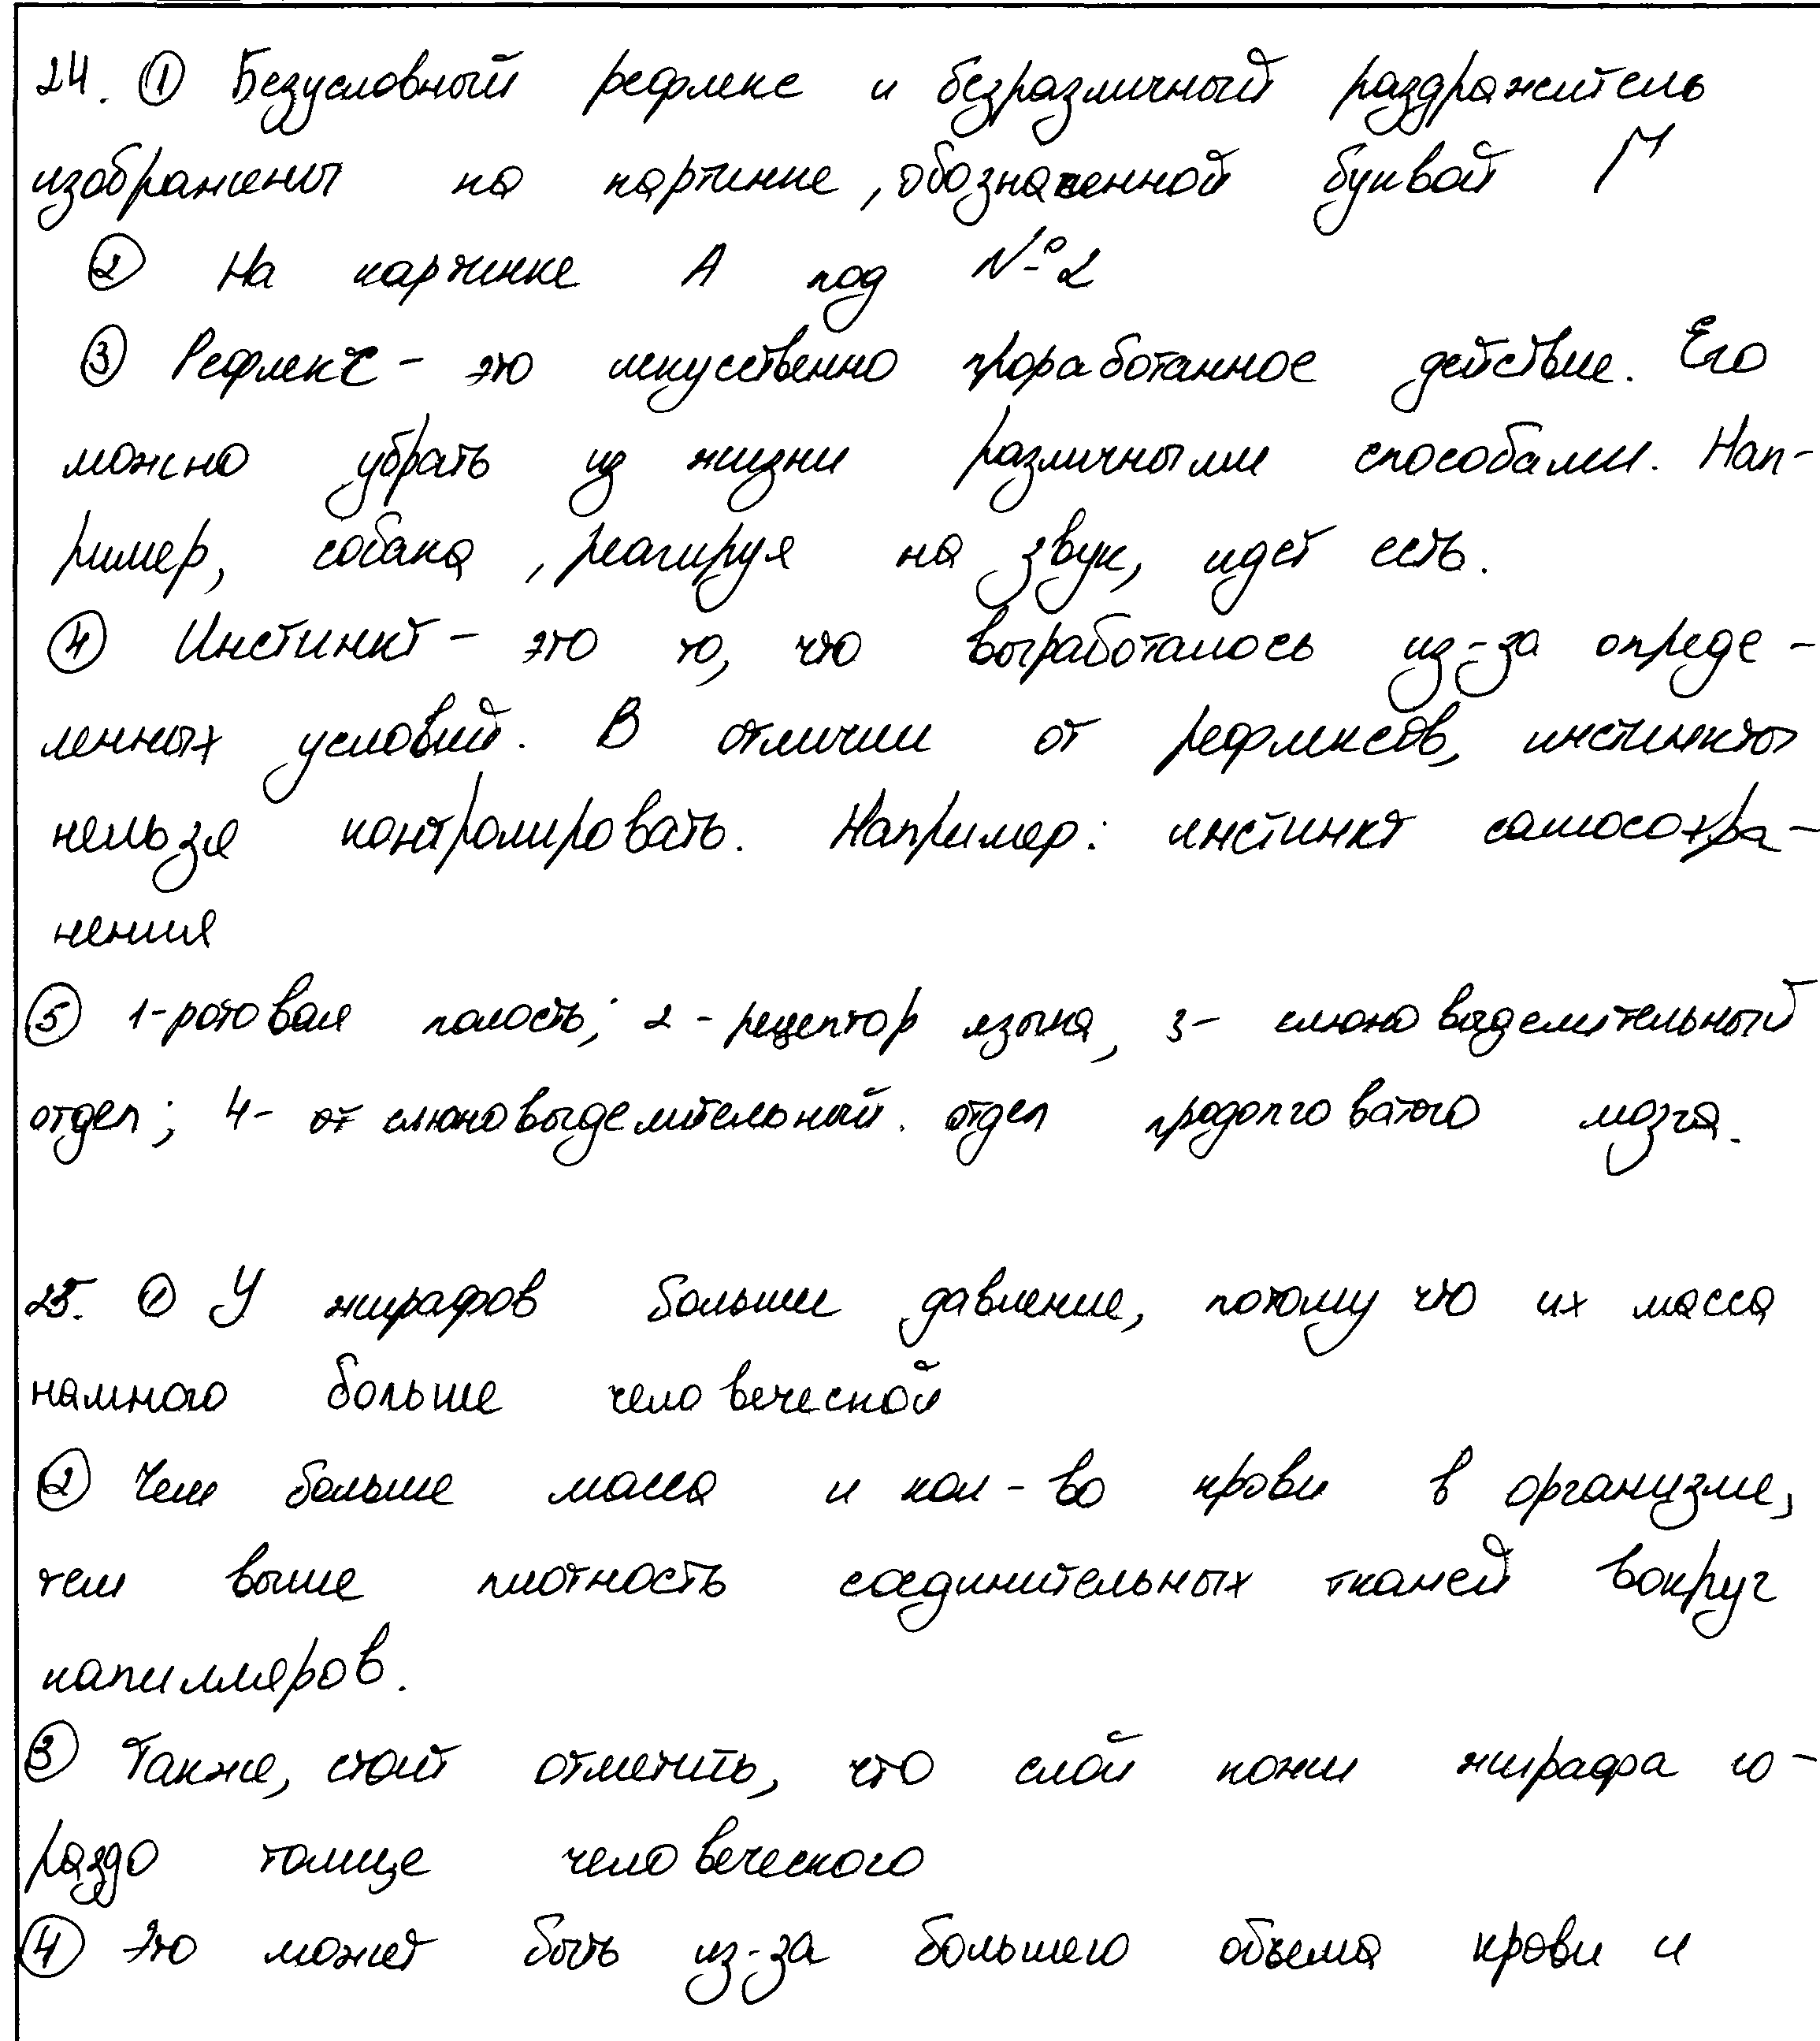 24. ① Безусловный рефлекс и безразличный раздражитель
изображены на картинке, обозначенной буквой Г
② На картинке А под № 2
③ Рефлекс - это искуственно проработанное действие. Его
можно убрать из жизни различными способами. Нап-
ример, собака, реагируя на звук, идет есть.
④ Инстинкт - это то, что выработалось из-за опреде-
ленных условий. В отличии от рефлексов, инстинкты
нельзя контролировать. Например: инстинкт самосохра-
нения
⑤ 1-ротовая полость; 2 - рецептор языка, 3- слюновыделительный
отдел; 4- слюновыделительный отдел продолговатого мозга.
25. ① У жирафов больше давление, потому что их масса
намного больше человеческой
② Чем больше масса и кол-во крови в организме,
тем выше плотность соединительных тканей вокруг
капилляров.
③ Также, стоит отметить, что слой кожи жирафа го-
раздо толще человеческого
④ Это может быть из-за большего объема крови и